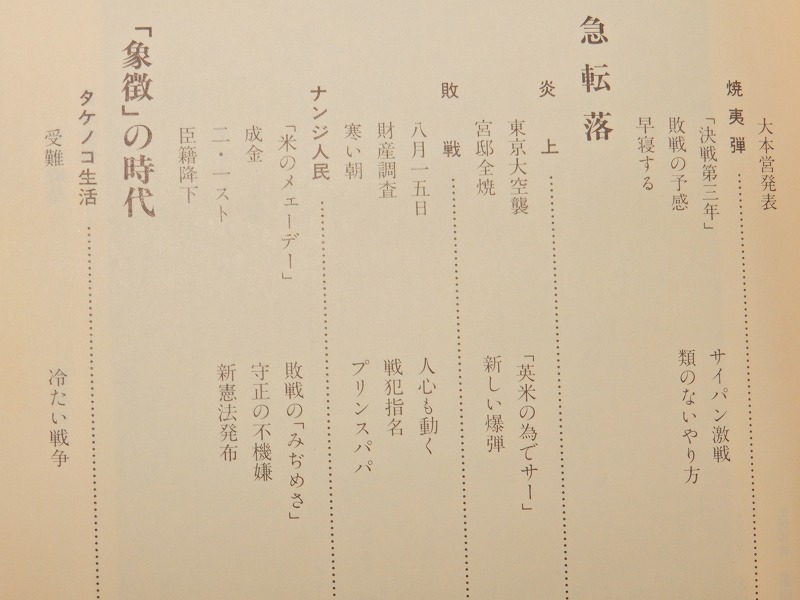 大本営発表
焼夷弾
「決戦第三年」
サイパン激戦
敗戦の予感
類のないやり方
早寝する
急転落
炎上
東京大空襲
「英米の為でサー」
宮邸全焼
新しい爆弾
敗戦
八月一五日
人心も動く
財産調査
戦犯指名
寒い朝
プリンスパパ
ナンジ人民
「米のメェーデー」
敗戦の「みぢめさ」
成金
守正の不機嫌
二・一スト
新憲法発布
臣籍降下
「象徴」の時代
タケノコ生活
受難
冷たい戦争